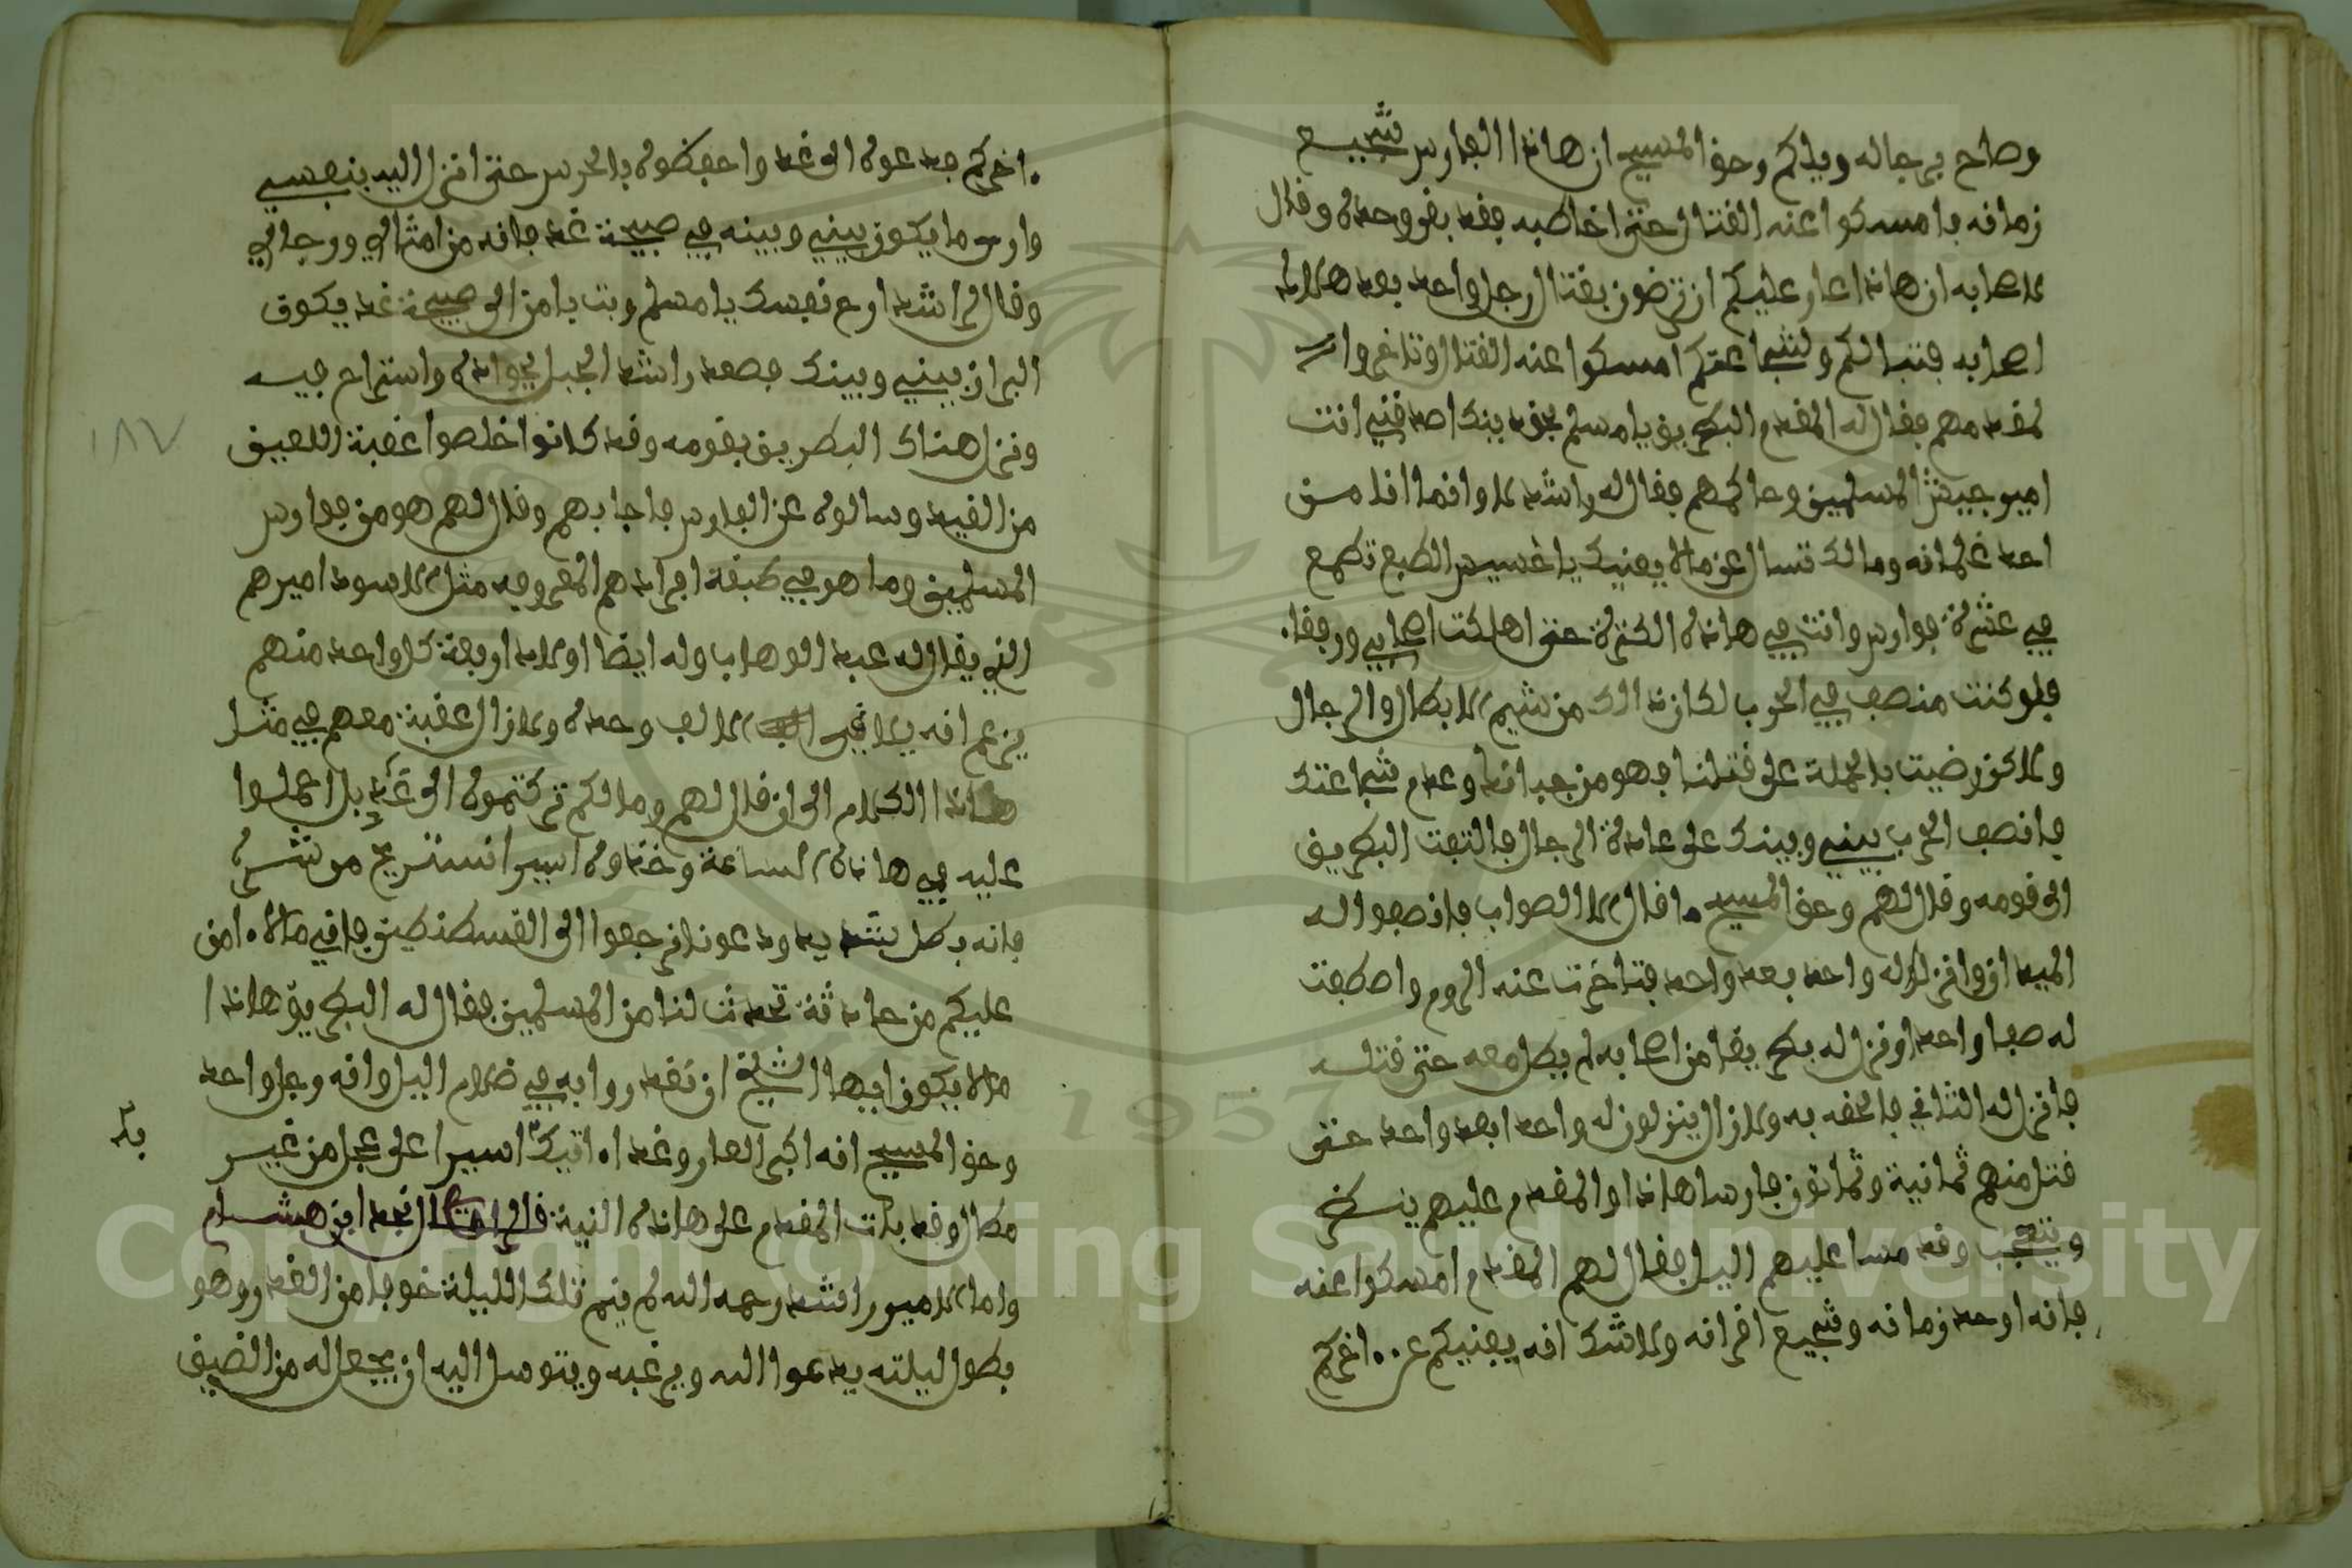 وصاح برجاله ويلكم وحق المسيح ان هاذا الفارس شجيع
زمانه فامسكوا عنه القتال حتى اخاطبه فقد بقى وحده وقال
لاصحابه ان هاذا عار عليكم ان ترضون بقتال رجل واحد بعد هلاك
اصحابه فتبا لكم ولشجاعتكم امسكوا عنه القتال وتاخروا
فقال له المقدم البطريق يا مسلم بحق دينك اصدقني انت
امير جيش المسلمين وحاكمهم فقال له راشد لا وانما انا من
احد غلمانه ومالك تسال عن مالا يعنيك يا خسيس الطبع تطمع
في عشرة فوارس وانت في هاذه الكثرة حتى اهلكت اصحابي ورفقا
فلو كنت منصف في الحرب لكان ذالك من شيم الابطال والرجال
ولاكن رضيت بالحملة على قتلنا فهو من جبانة وعدم شجاعتك
فانصف الحرب بيني وبينك على عادة الرجال فالتفت البطريق
الى قومه وقال لهم وحق المسيح ما قال الا الصواب فانصفوا له
الميدان وانزلوا له واحد بعد واحد فتاخرت عنه الروم واصطفت
له صفا واحدا ونزل له بطريقا من اصحابه لم يطل معه حتى قتله
فانزل له الثاني فالحقه به ولازال ينزلون له واحدا بعد واحد حتى
قتل منهم ثمانية وثمانون فارسا هاذا والمقدم عليهم ينظر
ويتعجب وقد مسا عليهم اليل فقال لهم المقدم امسكوا عنه
فانه اوحد زمانه وشجيع اقرانه ولاشك انه يفنيكم عن اخركم
اخركم فدعوه الى غد واحفظوه بالحرس حتى انزل اليه بنفسي
وارى ما يكون بيني وبينه في صبيحة غد فانه من امثالي ورجالي
وقال لراشد ارح نفسك يا مسلم وبت بامن الى صبيحة غد يكون
البراز بيني وبينك فصعد راشد الجبل بجواده واستراح فيه
ونزل هناك البطريق بقومه وقد كانوا خلصوا عقبة اللعين
من القيد وسالوه عن الفارس فاجابهم وقال لهم هو من فوارس
المسلمين وما هو في طبقة افرادهم المعروفه مثل الاسود اميرهم
الذي يقال له عبد الوهاب وله ايضا اولاد اربعة كل واحد منهم
يزعم انه يلاقي الالف وحده ولازال عقبة معهم في مثل
هاذا الكلام الى ان قال لهم ومالكم تركتموه الى غد بل احملوا
عليه في هاذه الساعة وخذوه اسيرا نستريح من شره
فانه بطل شديد ودعونا نرجعوا الى القسطنطين فاني مالا امن
عليكم من حادثة تحدث لنا من المسلمين فقال له البطريق هاذا
مالا يكون ايها الشيخ ان نغدروا به في ظلام اليل وانه رجل واحد
وحق المسيح انه اكبر العار وغدا اتيك اسيرا على عجل من غير
مطال وقد بات المقدم على هاذه النية قال الراوي نجد ابن هشام
واما الامير راشد رحمه الله لم ينم تلك الليلة خوفا من الغدر وهو
بطول ليلته يدعوا الله ويرغبه ويتوسل اليه ان يجعل له من الضيق
١٨٧
Copyright © King Saud University
1957